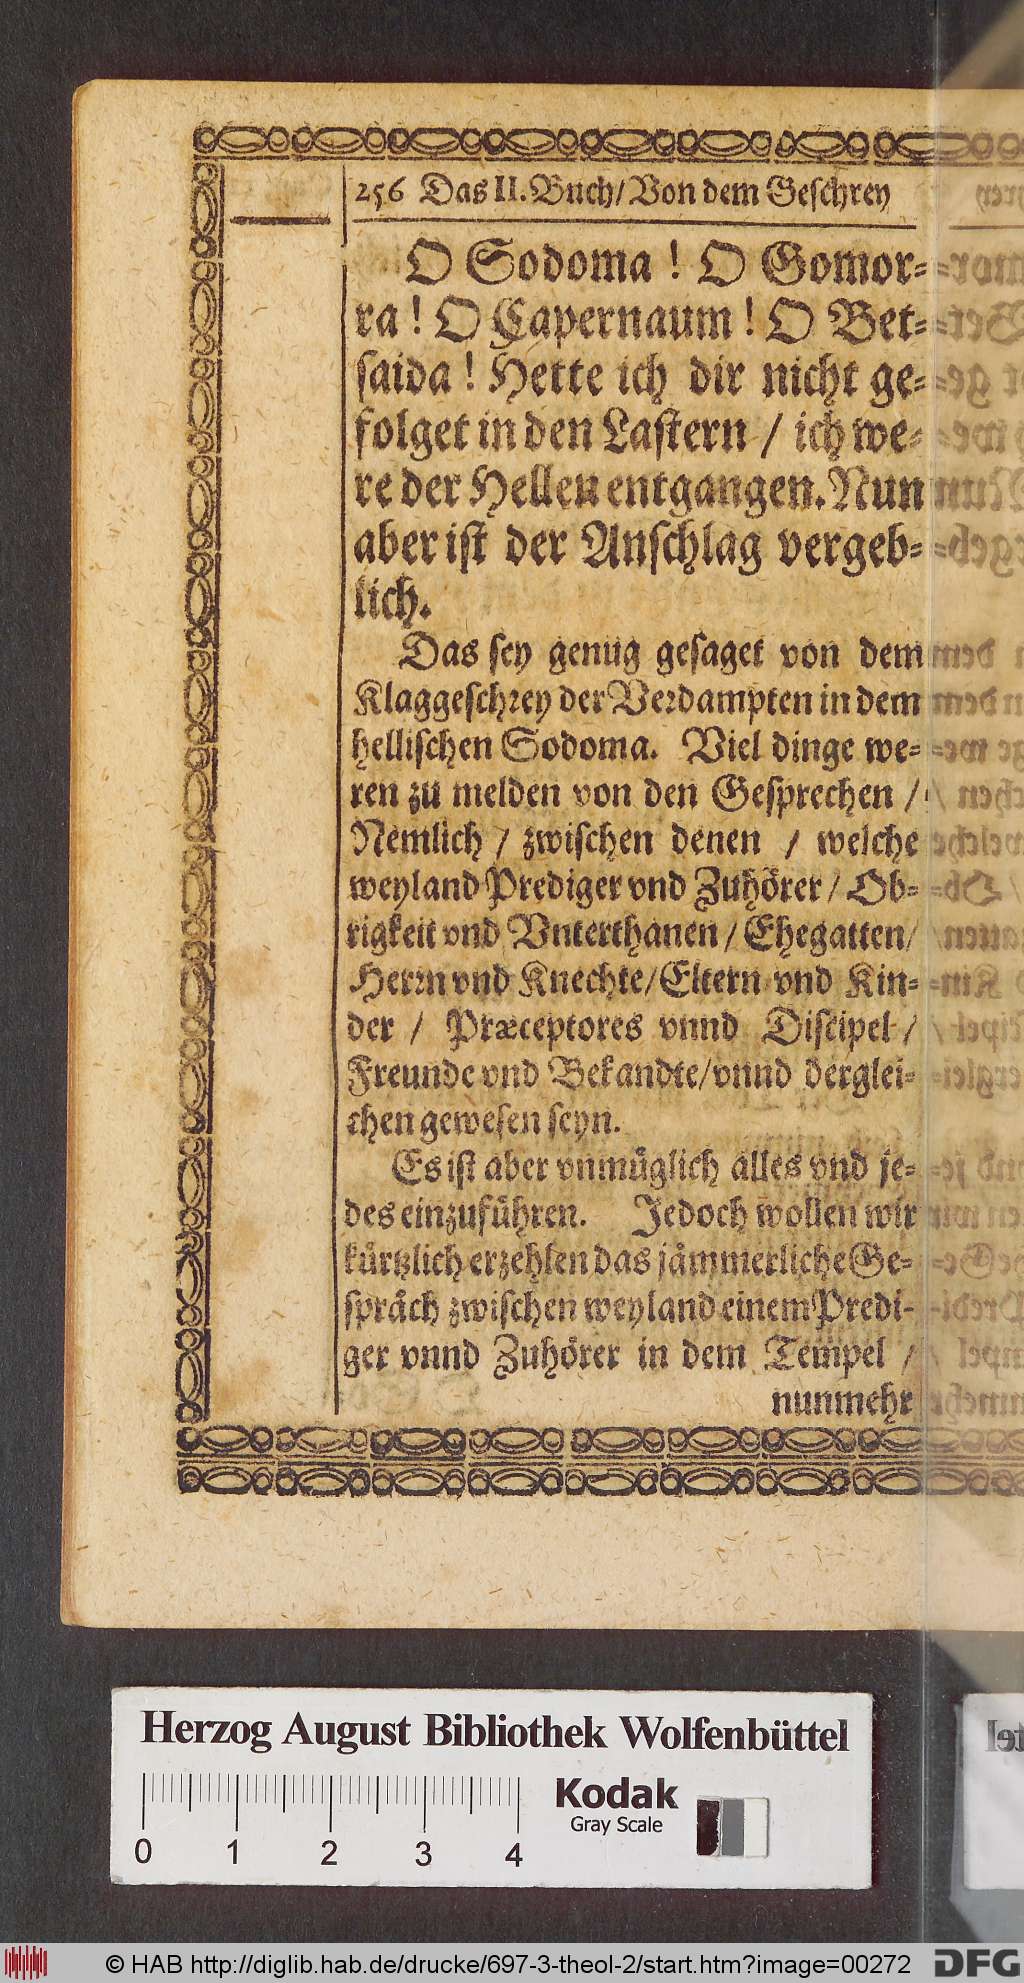 256 Das II. Buch/ Von dem Geschrey
O Sodoma! O Gomor-
ra! O Capernaum! O Bet-
saida! Hette ich dir nicht ge-
folget in den Lastern / ich we-
re der Hellen entgangen. Nun
aber ist der Anschlag vergeb-
lich.
Das sey genug gesaget von dem
Klaggeschrey der Verdampten in dem
hellischen Sodoma. Viel dinge we-
ren zu melden von den Gesprechen /
Nemlich / zwischen denen / welche
weyland Prediger vnd Zuhörer / Ob-
rigkeit vnd Vnterthanen / Ehegatten/
Herrn vnd Knechte/ Eltern vnd Kin-
der / Præceptores vnnd Discipel /
Freunde vnd Bekandte/ vnnd derglei-
chen gewesen seyn.
Es ist aber vnmüglich alles vnd je-
des einzuführen. Jedoch wollen wir
kürtzlich erzehlen das jämmerliche Ge-
spräch zwischen weyland einem Predi-
ger vnnd Zuhörer in dem Tempel /
nunmehr
Herzog August Bibliothek Wolfenbüttel
Kodak
Gray Scale
0 1 2 3 4
© HAB http://diglib.hab.de/drucke/697-3-theol-2/start.htm?image=00272
DFG